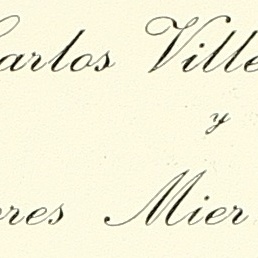 arlos Ville
y
res Mier